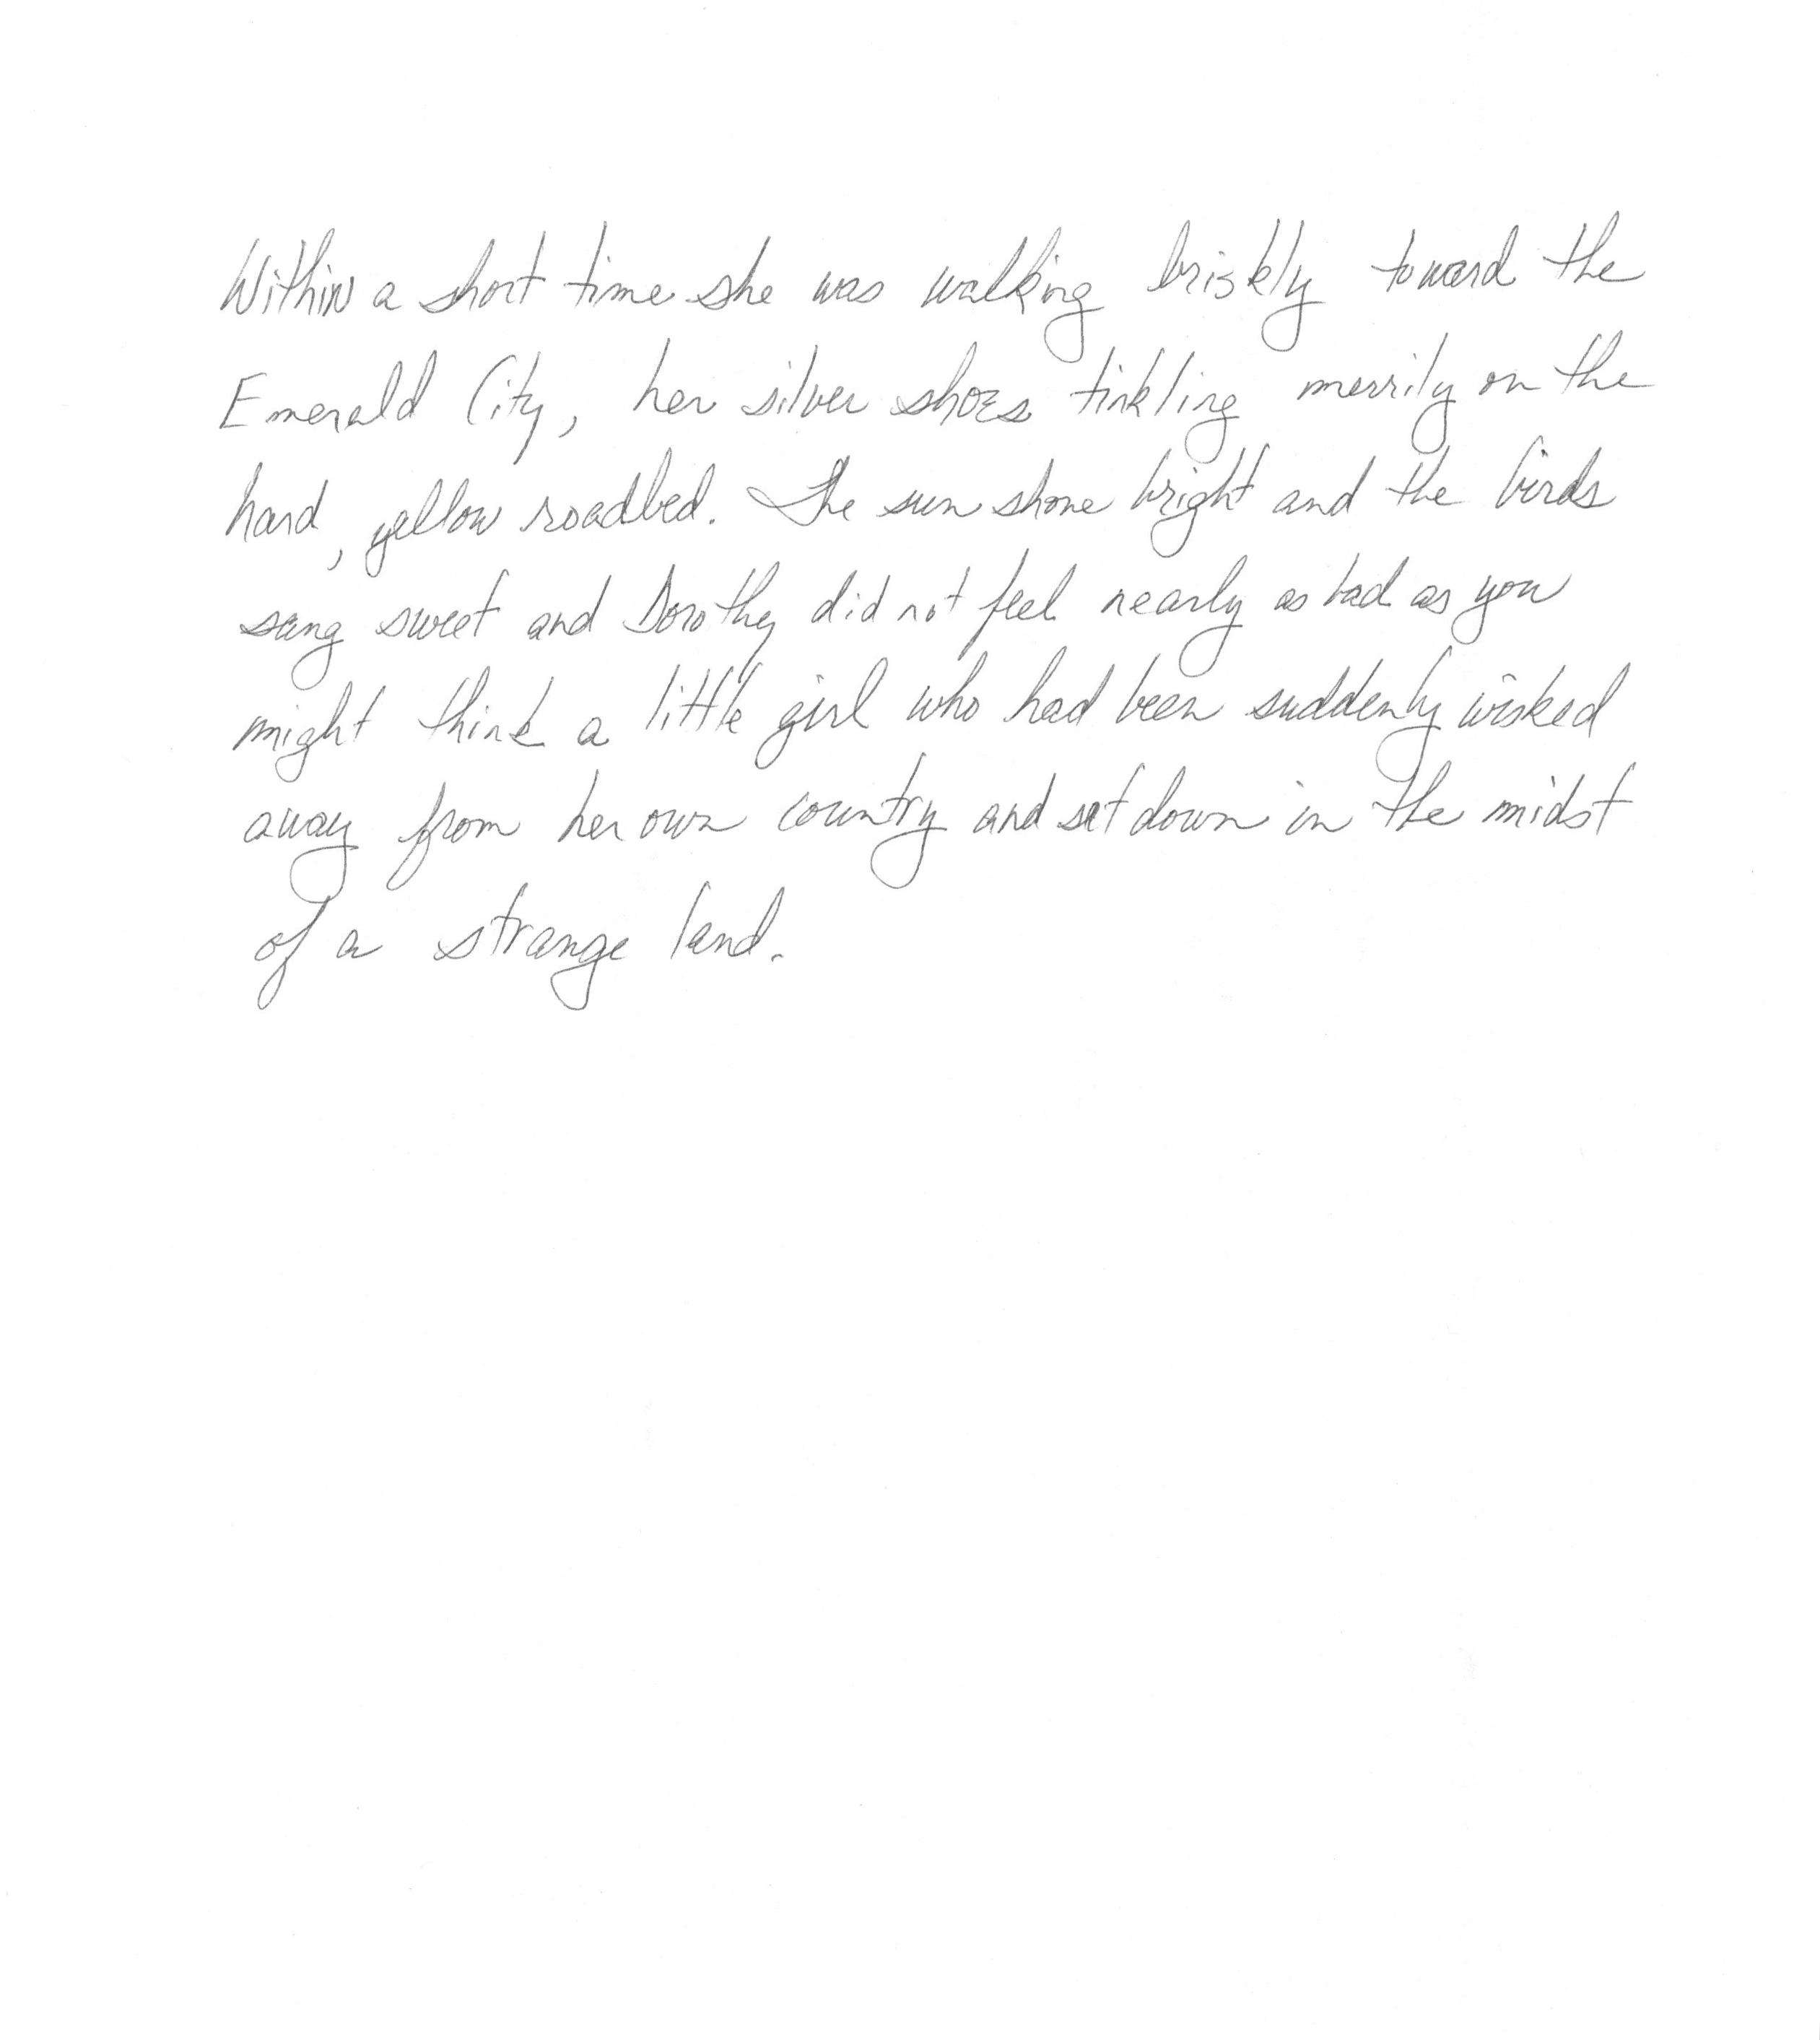 Within a short time she was walking briskly toward the
Emerald City, her silver shoes tinkling merrily on the
hard, yellow roadbed. The sun shone bright and the birds
sang sweet and Dorothy did not feel nearly as bad as you
might think a little girl who had been suddenly wisked
away from her own country and set down in the midst
of a strange land.